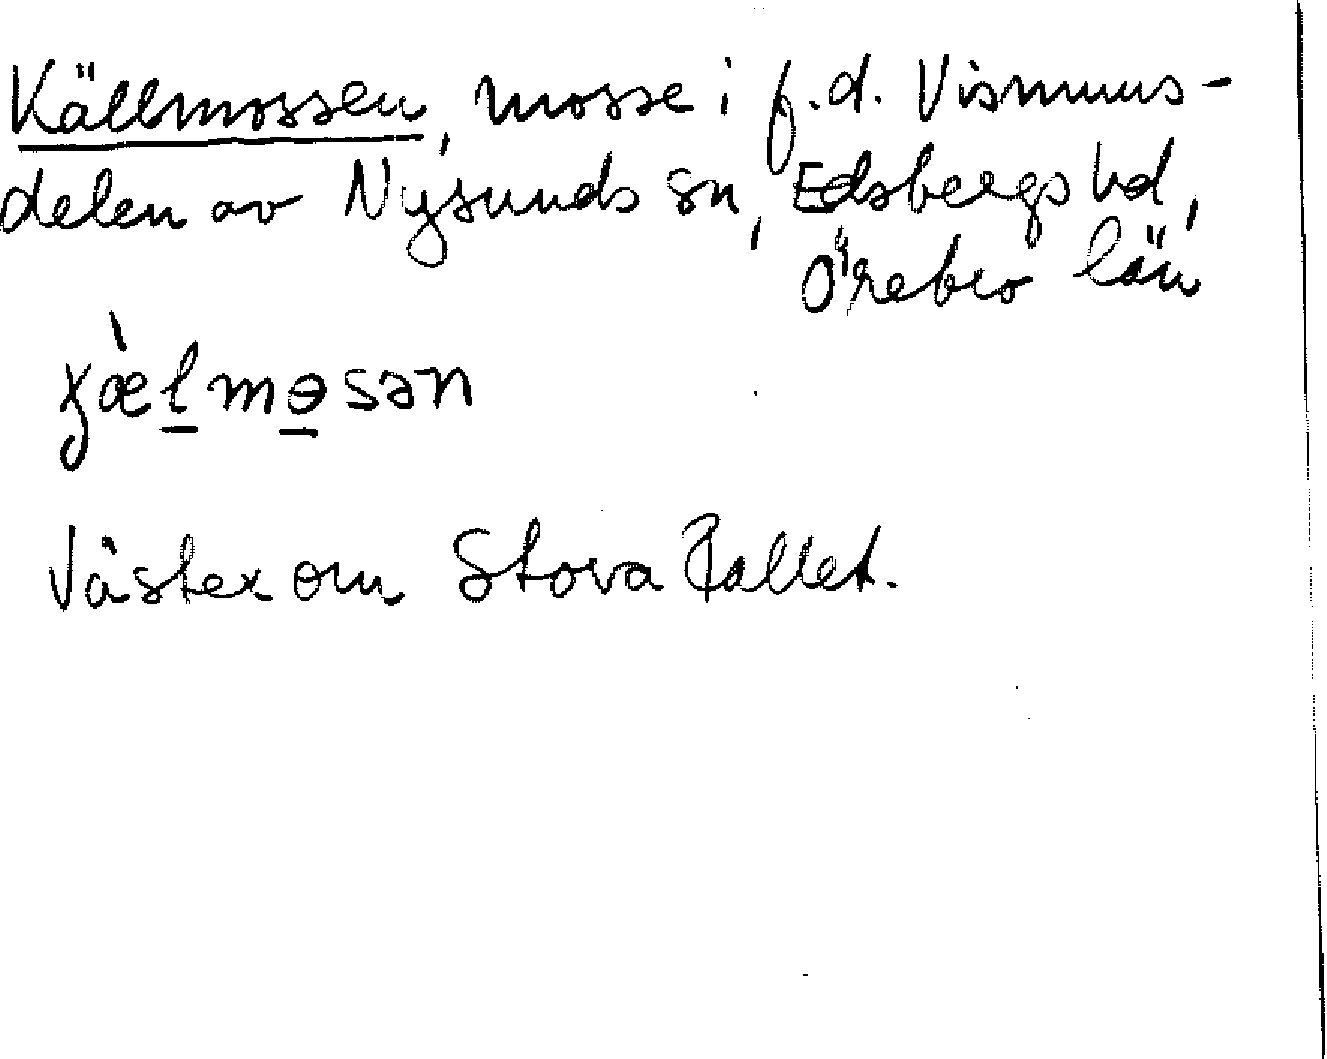 Källmossen, mosse i f.d. Vismus-
delen av Nysunds sn, Edsbergs hd,
Örebro län
Väster om Stora Pallet.